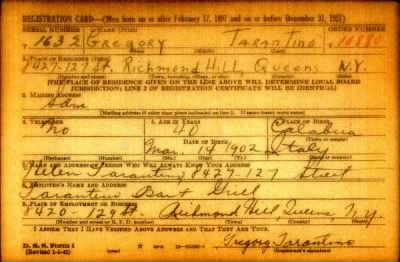 REGISTRATION CARD—(Men born on or after February 17, 1897 and on or before December 31, 1921)
SERIAL NUMBER 1. NAME (Print) ORDER NUMBER
1632 Gregory Tarantino 10880
2. PLACE OF RESIDENCE (Print)
8427-127 St. Richmond Hill, Queens N.Y.
(Number and street) (Town, township, village, or city) (County) (State)
[THE PLACE OF RESIDENCE GIVEN ON THE LINE ABOVE WILL DETERMINE LOCAL BOARD
JURISDICTION; LINE 2 OF REGISTRATION CERTIFICATE WILL BE IDENTICAL]
3. MAILING ADDRESS
Same
[Mailing address if other than place indicated on line 2. If same insert word same]
4. TELEPHONE 5. AGE IN YEARS 6. PLACE OF BIRTH
no 40 Calabria
DATE OF BIRTH
Mar. 14 1902 Italy
(Exchange) (Number) (Mo.) (Day) (Yr.) (State or country)
7. NAME AND ADDRESS OF PERSON WHO WILL ALWAYS KNOW YOUR ADDRESS
Helen Tarantino 8427-127 Street
8. EMPLOYER'S NAME AND ADDRESS
Tarantino Bar & Grill
9. PLACE OF EMPLOYMENT OR BUSINESS
8420-129 St. Richmond Hill Queens N.Y.
(Number and street or R. F. D. number) (Town) (County) (State)
I AFFIRM THAT I HAVE VERIFIED ABOVE ANSWERS AND THAT THEY ARE TRUE.
D. S. S. Form 1
(Revised 1-1-42) (over)
Gregory Tarantino